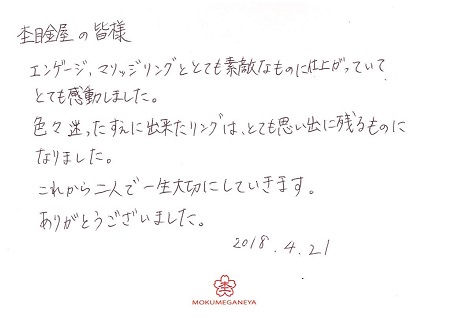 杢目金屋の皆様
エンゲージ、マリッジリングととても素敵なものに仕上がっていて
とても感動しました。
色々迷ったすえに出来たリングは、とても思い出に残るものに
なりました。
これから二人で一生大切にしていきます。
ありがとうございました。
2018.4.21
MOKUMEGANEYA